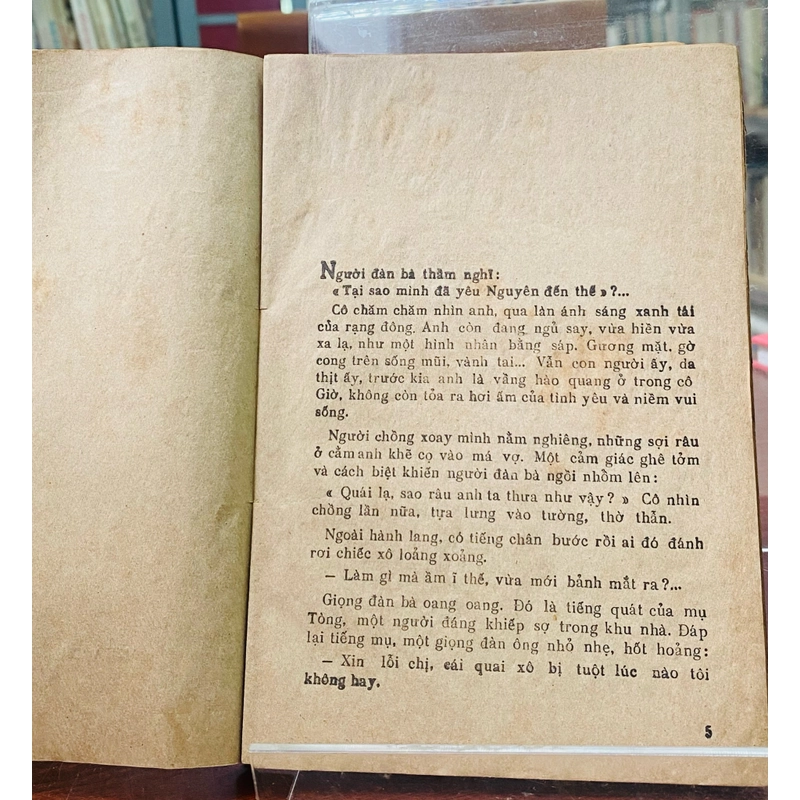 Người đàn bà thầm nghĩ:
« Tại sao mình đã yêu Nguyên đến thế » ?...
Cô chăm chăm nhìn anh, qua làn ánh sáng xanh tái
của rạng đông. Anh còn đang ngủ say, vừa hiền vừa
xa lạ, như một hình nhân bằng sáp. Gương mặt, gờ
cong trên sống mũi, vành tai... Vẫn con người ấy, da
thịt ấy, trước kia anh là vầng hào quang ở trong cô
Giờ, không còn tỏa ra hơi ấm của tình yêu và niềm vui
sống.
Người chồng xoay mình nằm nghiêng, những sợi râu
ở cằm anh khẽ cọ vào má vợ. Một cảm giác ghê tởm
và cách biệt khiến người đàn bà ngồi nhồm lên:
« Quái lạ, sao râu anh ta thưa như vậy ? » Cô nhìn
chồng lần nữa, tựa lưng vào tường, thờ thẫn.
Ngoài hành lang, có tiếng chân bước rồi ai đó đánh
rơi chiếc xô loảng xoảng.
— Làm gì mà ầm ĩ thế, vừa mới bảnh mắt ra ?...
Giọng đàn bà oang oang. Đó là tiếng quát của mụ
Tòng, một người đáng khiếp sợ trong khu nhà. Đáp
lại tiếng mụ, một giọng đàn ông nhỏ nhẹ, hốt hoảng:
— Xin lỗi chị, cái quai xô bị tuột lúc nào tôi
không hay.
5